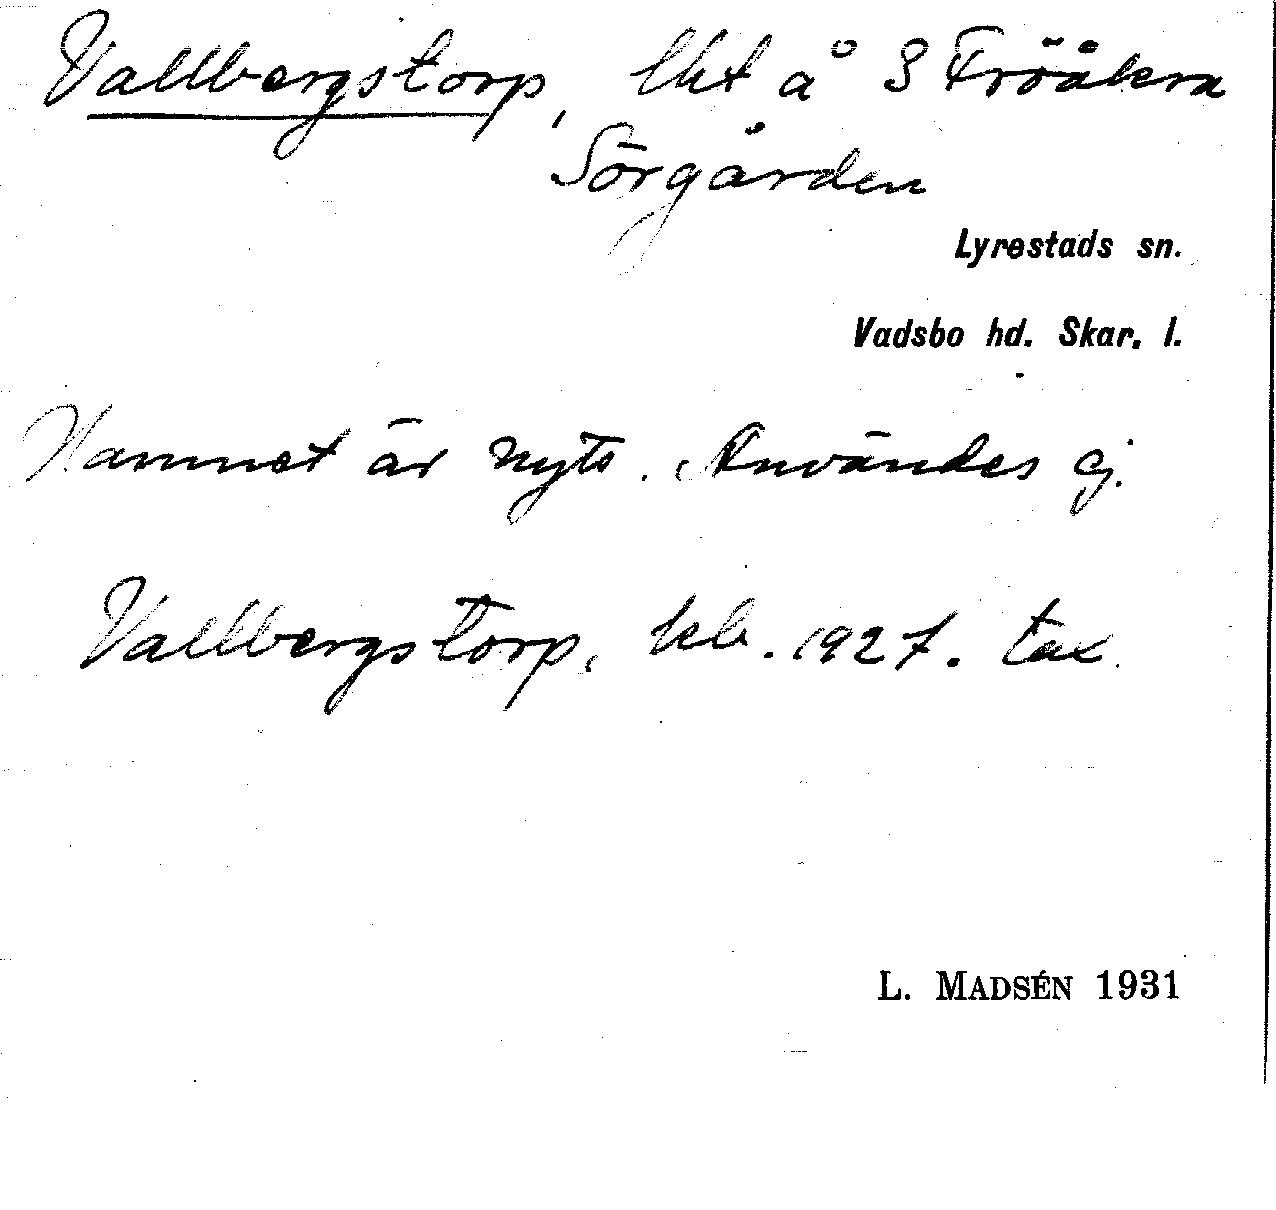 Vallbergstorp, lht å S Fröåkra
Sörgården
Lyrestads sn.
Vadsbo hd. Skar. l.
Namnet är nytt. Användes ej.
Vallbergstorp, kb. 1927. tax.
L. MADSÉN 1931